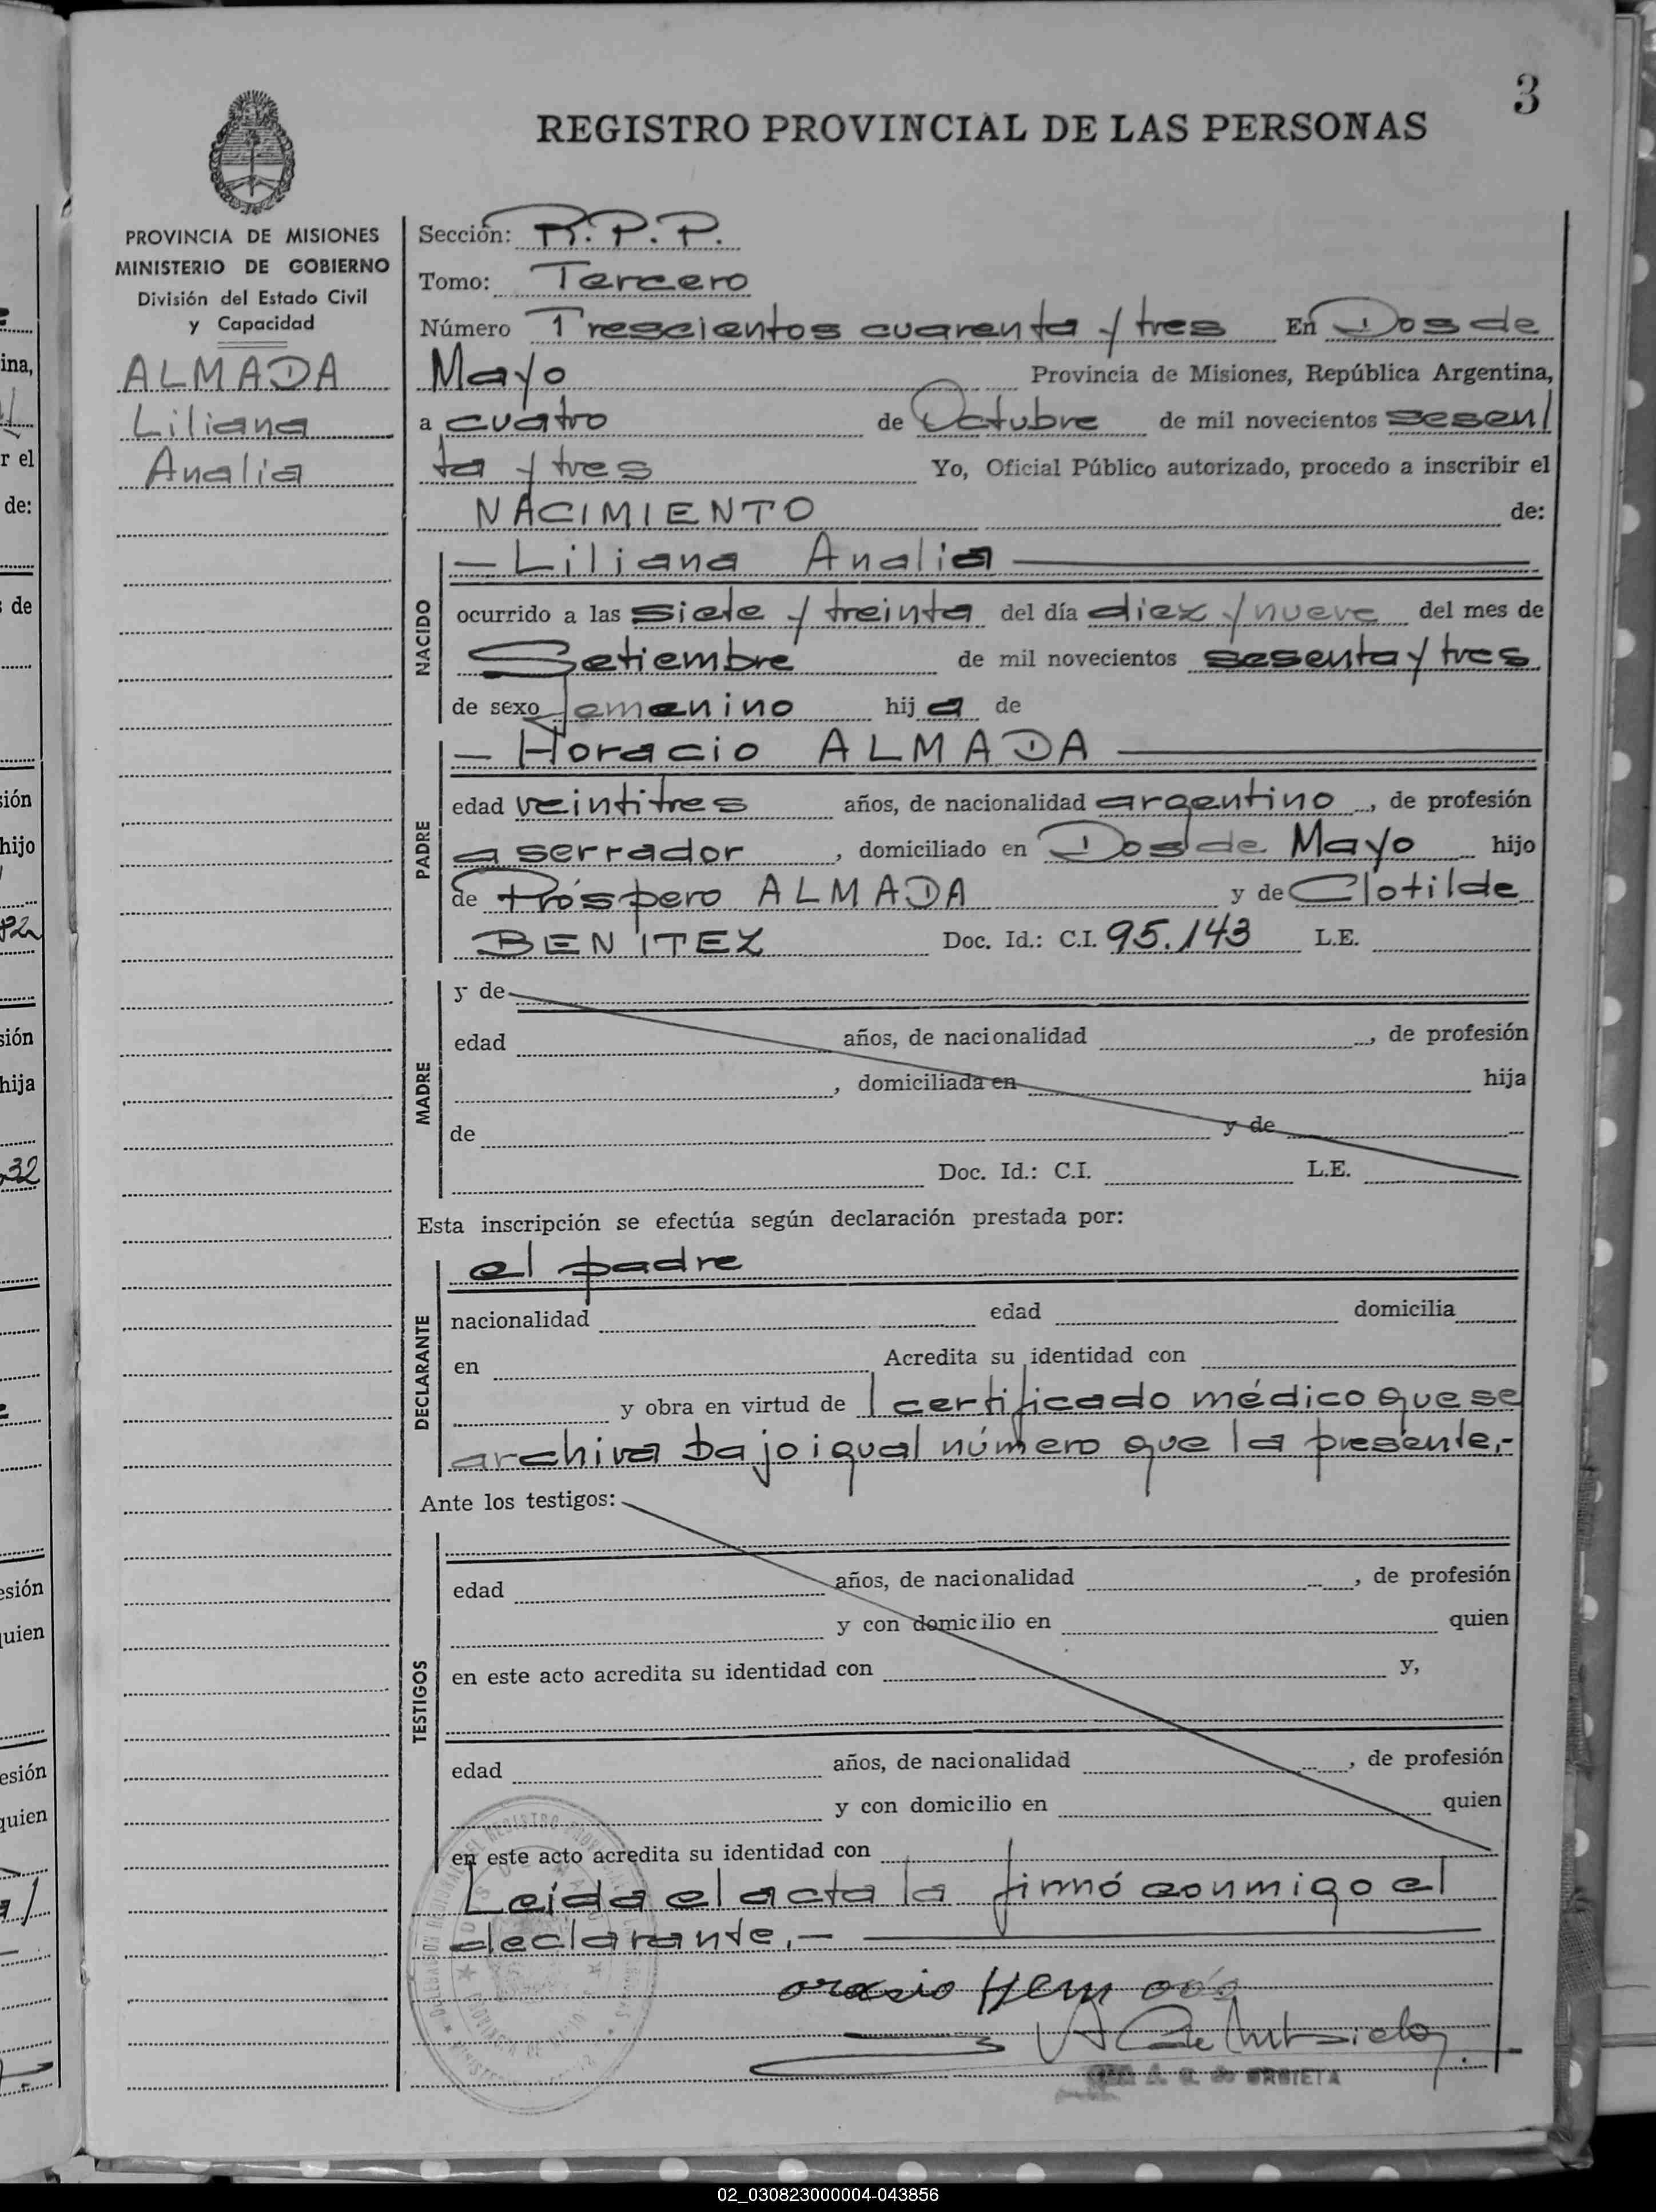 3
REGISTRO PROVINCIAL DE LAS PERSONAS
PROVINCIA DE MISIONES
MINISTERIO DE GOBIERNO
División del Estado Civil
y Capacidad
ALMADA
Liliana
Analia
Sección: R.P.P.
Tomo: Tercero
Número Trescientos cuarenta y tres En Dos de
Mayo Provincia de Misiones, República Argentina,
a cuatro de Octubre de mil novecientos sesen/
ta y tres Yo, Oficial Público autorizado, procedo a inscribir el
NACIMIENTO de:
NACIDO
— Liliana Analia —
ocurrido a las siete y treinta del día diez y nueve del mes de
Setiembre de mil novecientos sesenta y tres
de sexo femenino hij a de
PADRE
— Horacio ALMADA —
edad veintitres años, de nacionalidad argentino, de profesión
aserrador, domiciliado en Dos de Mayo hijo
de Próspero ALMADA y de Clotilde
BENITEZ Doc. Id.: C.I. 95.143 L.E.
MADRE
y de
edad años, de nacionalidad , de profesión
, domiciliada en hija
de y de
Doc. Id.: C.I. L.E.
Esta inscripción se efectúa según declaración prestada por:
DECLARANTE
el padre
nacionalidad edad domicilia
en Acredita su identidad con
y obra en virtud de 1 certificado médico que se
archiva bajo igual número que la presente.-
Ante los testigos:
TESTIGOS
edad años, de nacionalidad , de profesión
y con domicilio en quien
en este acto acredita su identidad con y,
edad años, de nacionalidad , de profesión
y con domicilio en quien
en este acto acredita su identidad con
Leida el acta la firmó conmigo el
declarante.- —
A. G. de URBIETA
02_030823000004-043856